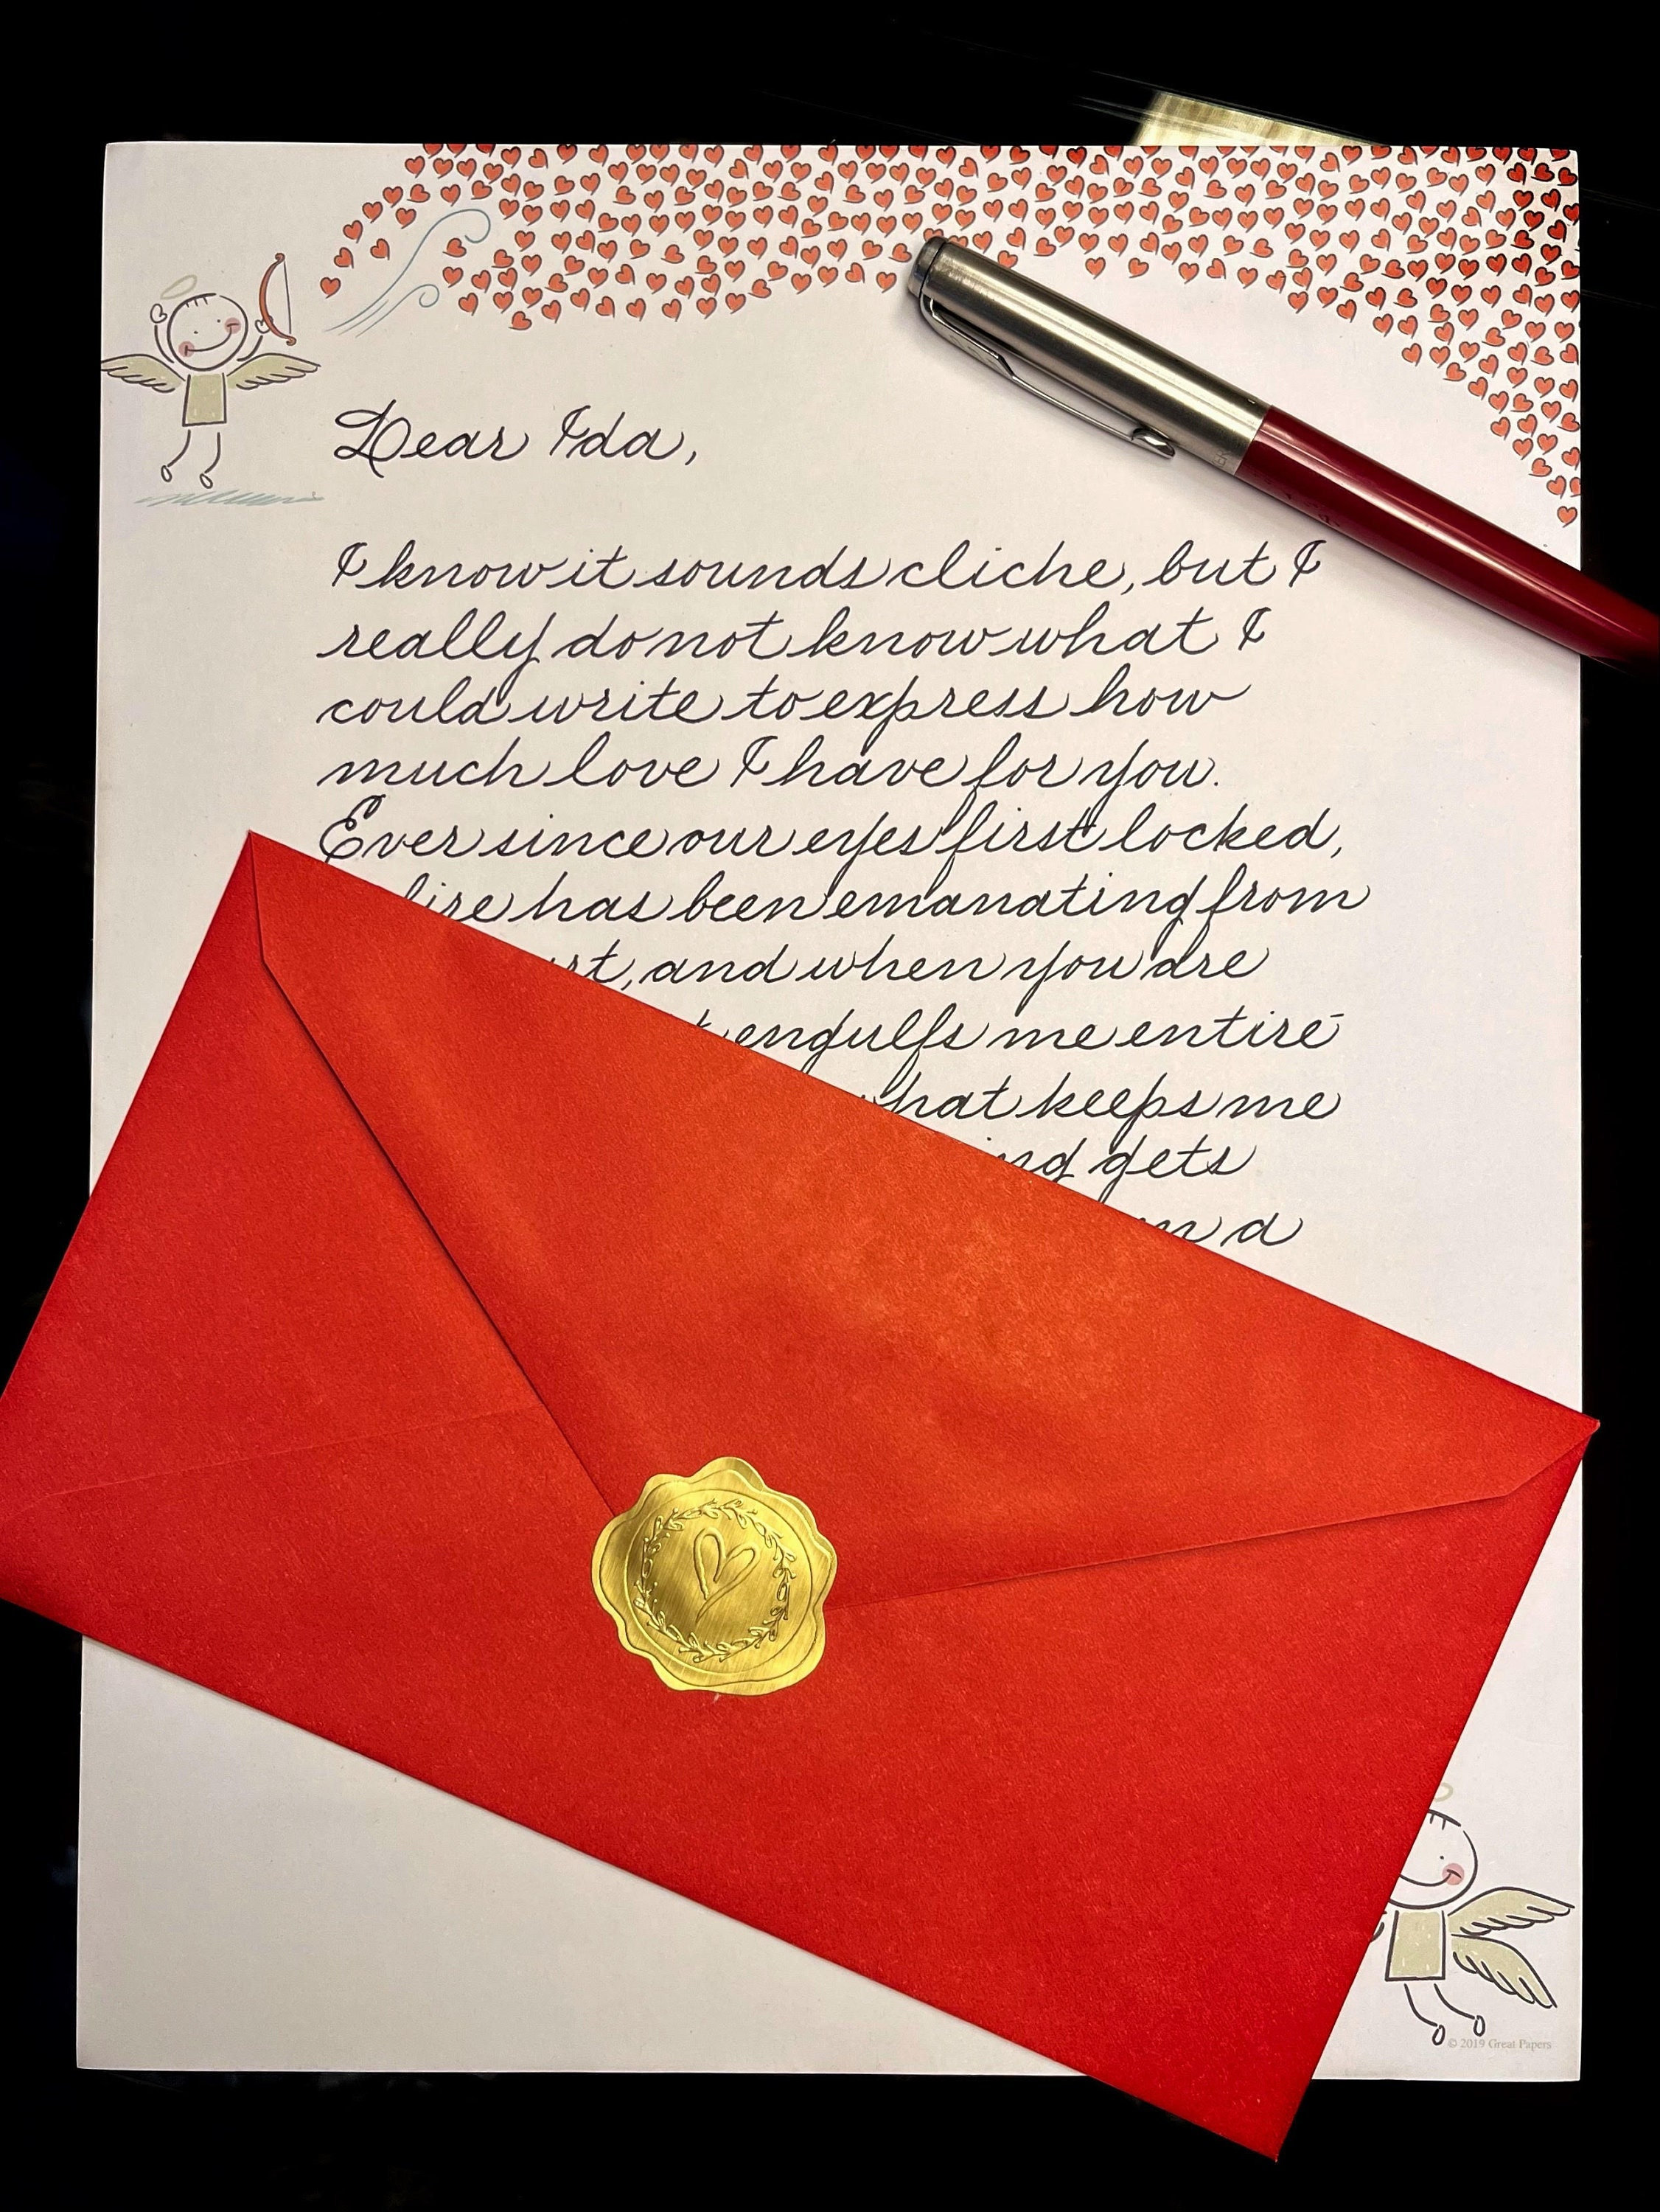 Dear Ida,
I know it sounds cliche, but I
really do not know what I
could write to express how
much love I have for you.
Ever since our eyes first locked,
fire has been emanating from
and when you are
engulfs me entire-
what keeps me
gets
a
© 2019 Great Papers